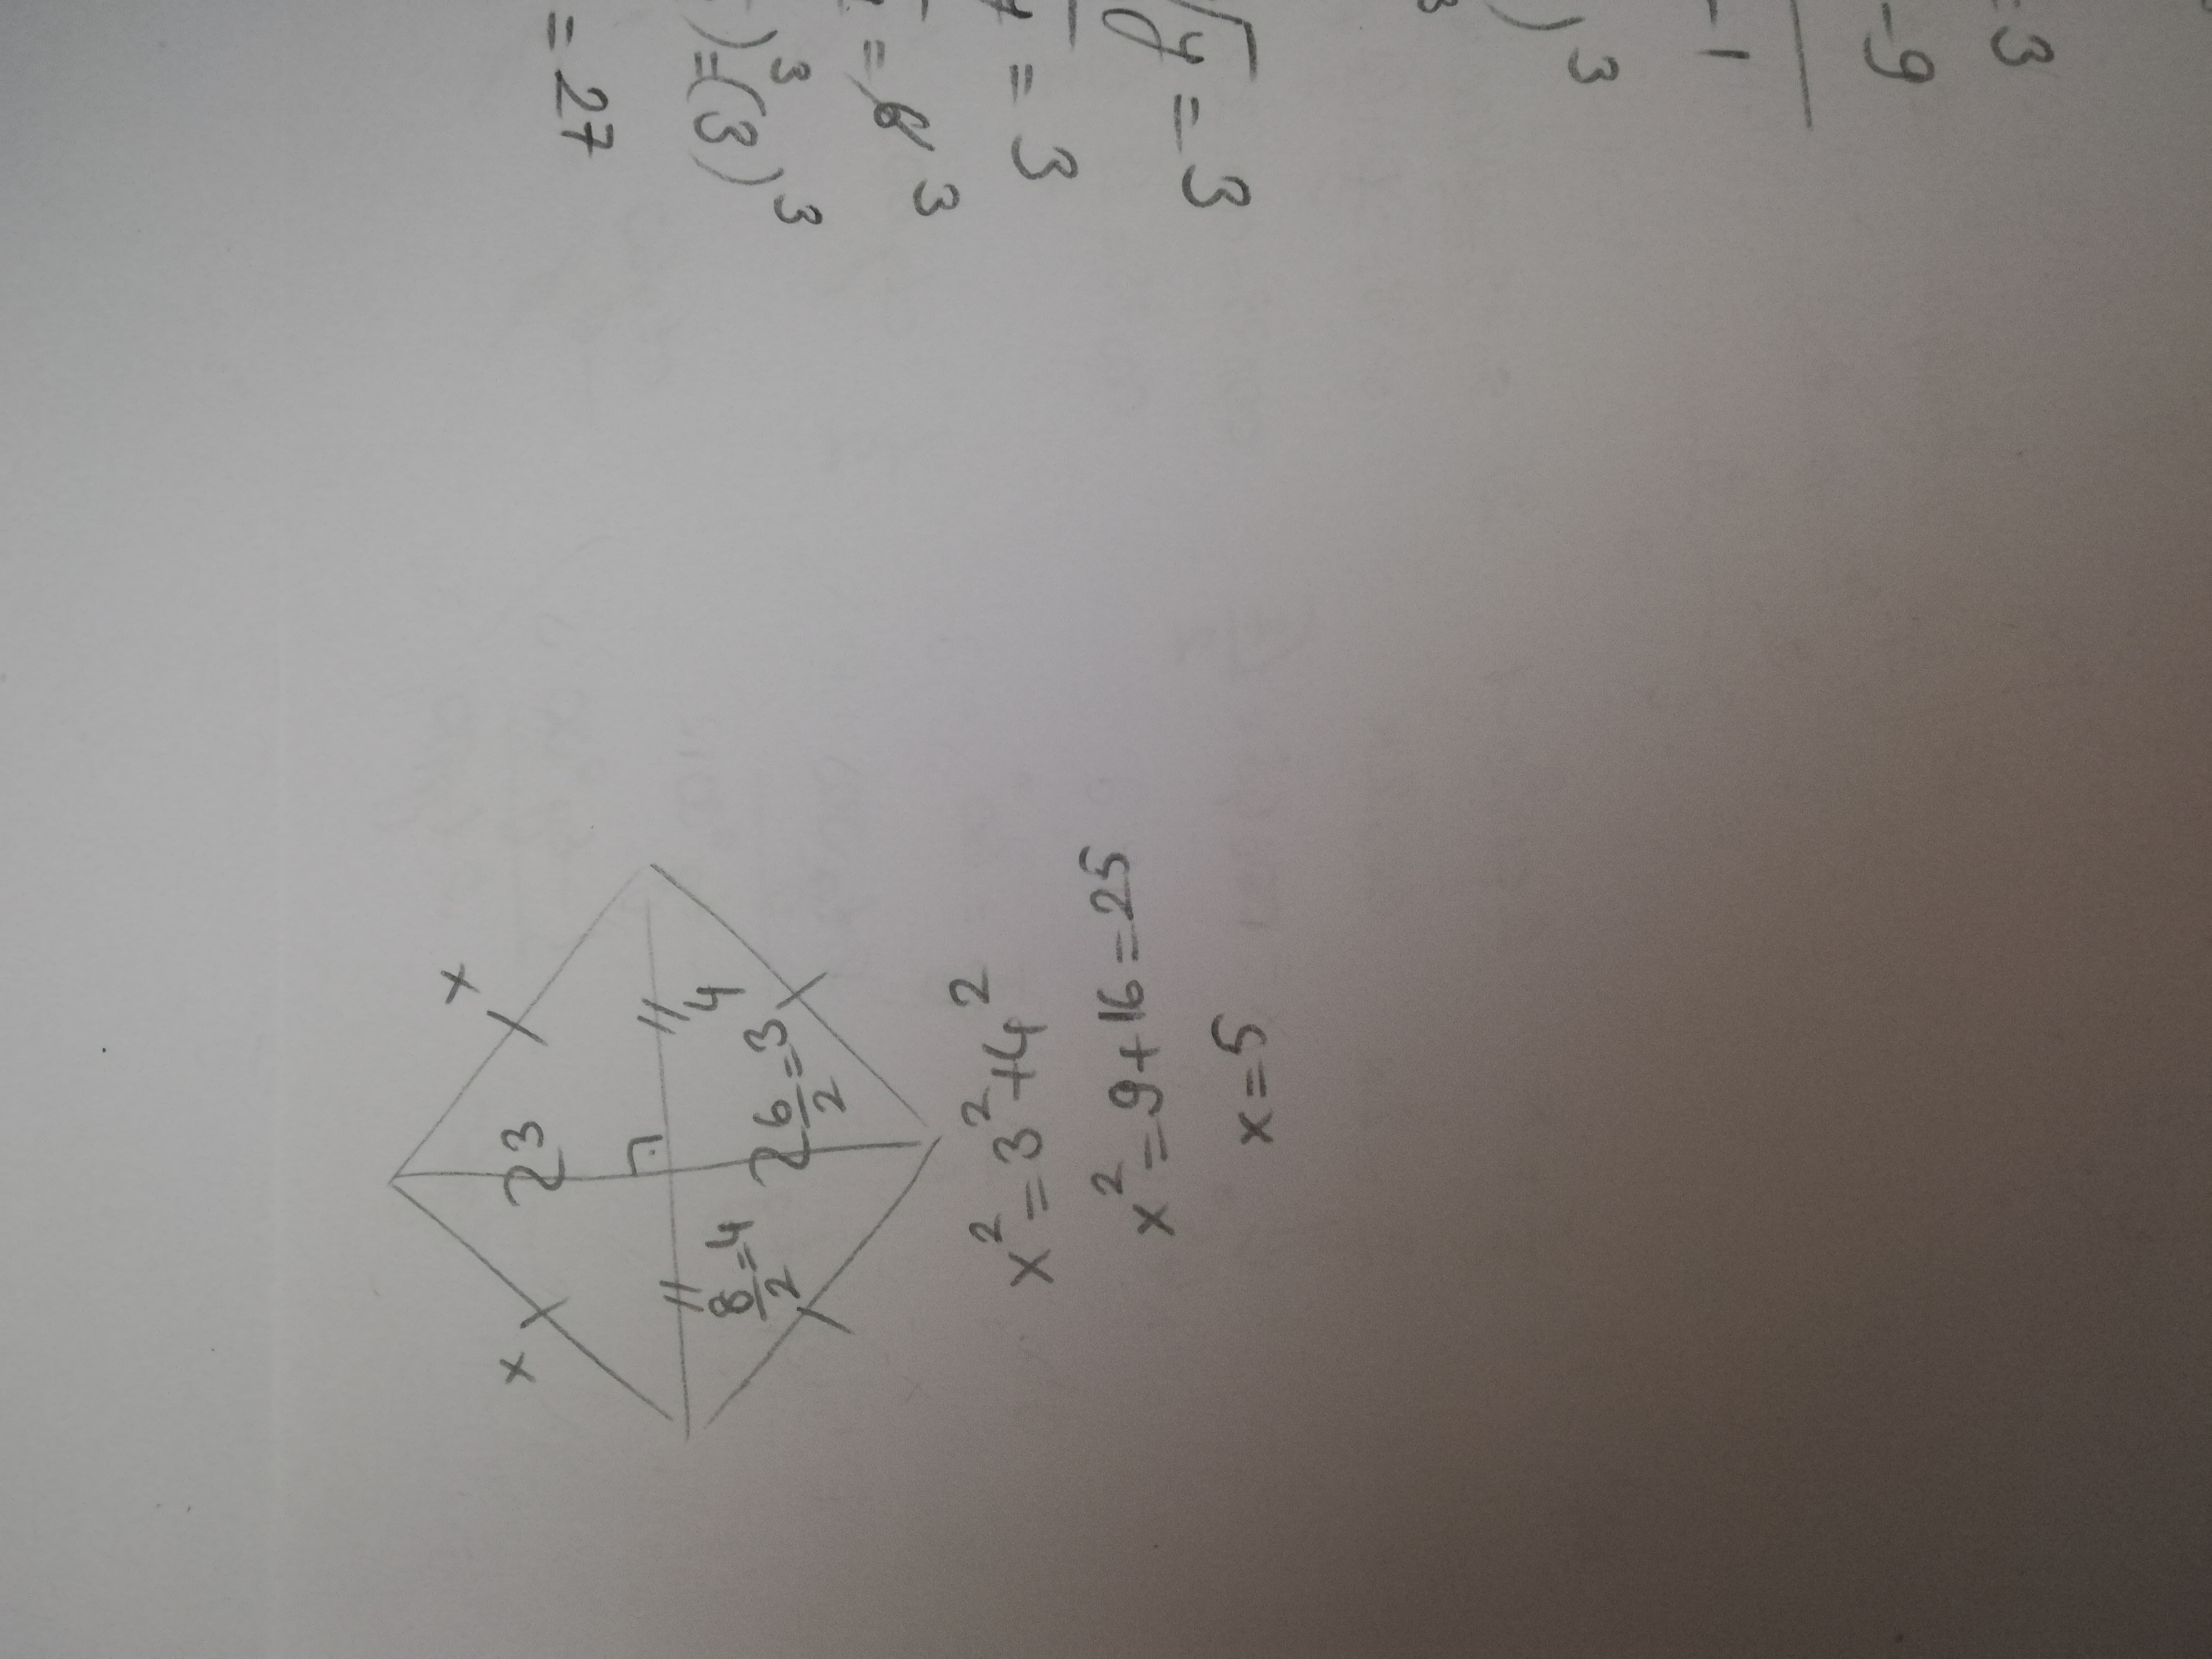 = 3
- 9
- 1
)³
√y = 3
= 3
= 3
)³ = (3)³
= 27
x
x
3
4
8/2 = 4
6/2 = 3
x² = 3² + 4²
x² = 9 + 16 = 25
x = 5